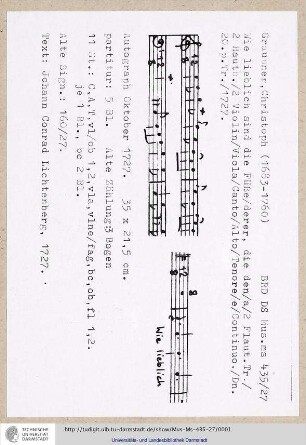 Graupner, Christoph (1683-1760) BRD DS Mus.ms 435/27
Wie lieblich sind die Füße/derer, die den/a/2 Flaut.Tr./
2 Hautb./2 Violin/Viola/Canto/Alto/Tenore/e/Continuo./Dn.
20.p.Tr./1727.
Wie lieblich
Autograph Oktober 1727. 35 x 21,5 cm.
partitur: 5 Bl. Alte Zählung: 3 Bogen
11 St.: C,A,T,vl/ob 1,2,vla,vlne/fag,bc,ob,fl 1,2.
je 1 Bl., bc 2 Bl.
Alte Sign.: 160/27.
Text: Johann Conrad Lichtenberg, 1727.
TECHNISCHE
UNIVERSITÄT
DARMSTADT
http://tudigit.ulb.tu-darmstadt.de/show/Mus-Ms-435-27/0001
Universitäts- und Landesbibliothek Darmstadt